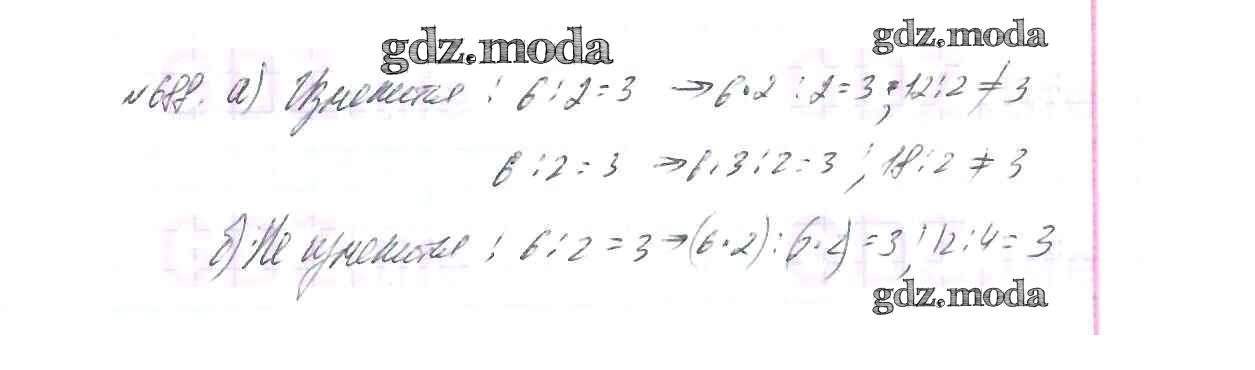 gdz.moda
gdz.moda
№688. а) Изменится ; 6:2=3 → 6·2:2=3; 12:2≠3
6:2=3 → 6·3:2=3; 18:2≠3
б) Не изменится ; 6:2=3 → (6·2):(2·2)=3; 12:4=3
gdz.moda